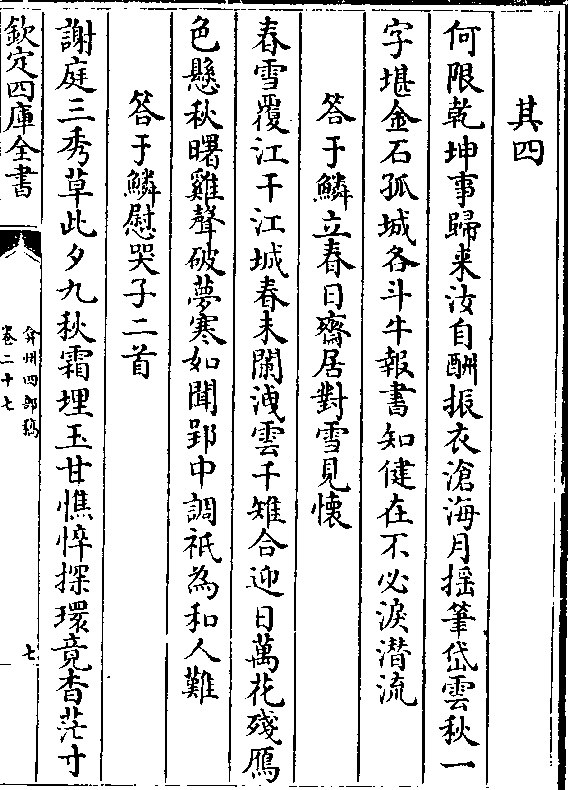 其四
何限乾坤事歸来汝自酬振衣滄海月揺筆岱雲秋一
字堪金石孤城各斗牛報書知健在不必淚潜流
答于鱗立春日齋居對雪見懷
春雪覆江干江城春未闌洩雲千雉合迎日萬花殘鴈
色懸秋曙雞聲破夢寒如聞郢中調祇為和人難
答于鱗慰哭子二首
謝庭三秀草此夕九秋霜埋玉甘憔悴探環竟杳茫寸
欽定四庫全書
弇州四部稿
卷二十七
七